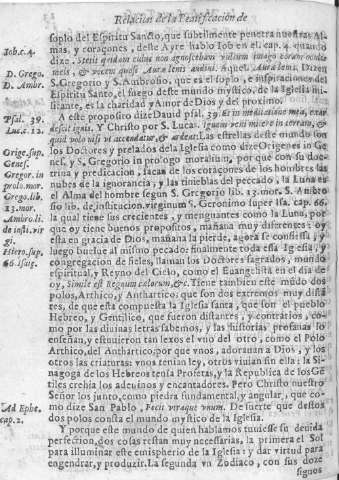 Relacion de la Beatificacion de
soplo del Espiritu Sancto, que subtilmente penetra nuestras Al-
mas, y coraçones, deste Ayre hablo Iob en el cap. 4. quando
Iob. c. 4.
dize. Stetit quidam cuius non agnoscebam vultum imago coram oculis
meis, & vocem quasi Auræ lenis audivi. Aquel Auræ lenis, Dizen
D. Grego.
S. Gregorio y S. Ambrosio, que es el soplo, e inspiraciones del
D. Ambr.
Espiritu Santo, el fuego deste mundo mystico, de la Iglesia mi-
litante, es la charidad y Amor de Dios y del proximo.
A este proposito dize Dauid psal. 39. Et in meditatione mea, exar-
Psal. 39.
descit ignis. Y Christo por S. Lucas. Ignem veni mittere in terram, &
Luc. c. 12.
quid volo nisi vt accendatur, & ardeat. Las estrellas deste mundo son
los Doctores y prelados de la Iglesia como dize Origines in Ge
Orige. sup.
nes, y S. Gregorio in prologo moralium, por que con su doc-
Genes.
trina y predicacion, sacan de los coraçones de los hombres las
Gregor. in
nubes de la ignorancia, y las tinieblas del peccado, la Luna es
prolo. mor.
el Alma del hombre segun S. Gregorio lib. 23. mor. S. Ambro
Grego. lib.
sio lib. de institucion. virginum S. Geronimo super Isa. cap. 66.
23. mor.
la qual tiene sus crecientes, y menguantes como la Luna, por
Ambro. li.
que oy tiene buenos propositos, mañana muy diferentes: oy
de insti. vir
esta en gracia de Dios, mañana la pierde, agora se confiessa, y
gi.
luego buelue al mismo pecado: finalmente toda essa Iglesia, y
Hiero. sup.
congregacion de fieles, llaman los Doctores sagrados, mundo
66. Isaię.
espiritual, y Reyno del Cielo, como el Euangelista en el dia de
oy, Simile est Regnum cœlorum, &c. Tiene tambien este mudo dos
polos, Arthico, y Anthartico: que son dos extremos muy dista
tes, de que esta compuesta la Iglesia sancta, que son el pueblo
Hebreo, y Gentilico, que fueron distantes, y contrarios, co-
mo por las diuinas letras sabemos, y las historias profanas lo
enseñan, y estuuieron tan lexos el vno del otro, como el Polo
Arthico, del Anthartico, por que vnos, adorauan a Dios, y los
otros las criaturas: vnos tenian ley, otros viuian sin ella: la Si-
nagoga de los Hebreos tenia Profetas, y la Republica de los Gē
tiles crehia los adeuinos y encantadores. Pero Christo nuestro
Señor los junto, como piedra fundamental, y angular, que co-
mo dize San Pablo, Fecit vtraque vnum. De suerte que destos
Ad Ephe.
dos polos consta el mundo mystico de la Iglesia.
cap. 2.
Y porque este mundo de quien hablamos tuuiesse su deuida
perfection, dos cosas restan muy necessarias, la primera el Sol
para illuminar este emispherio de la Iglesia: y dar virtud para
engendrar, y produzir. La segunda vn Zodiaco, con sus doze
signos